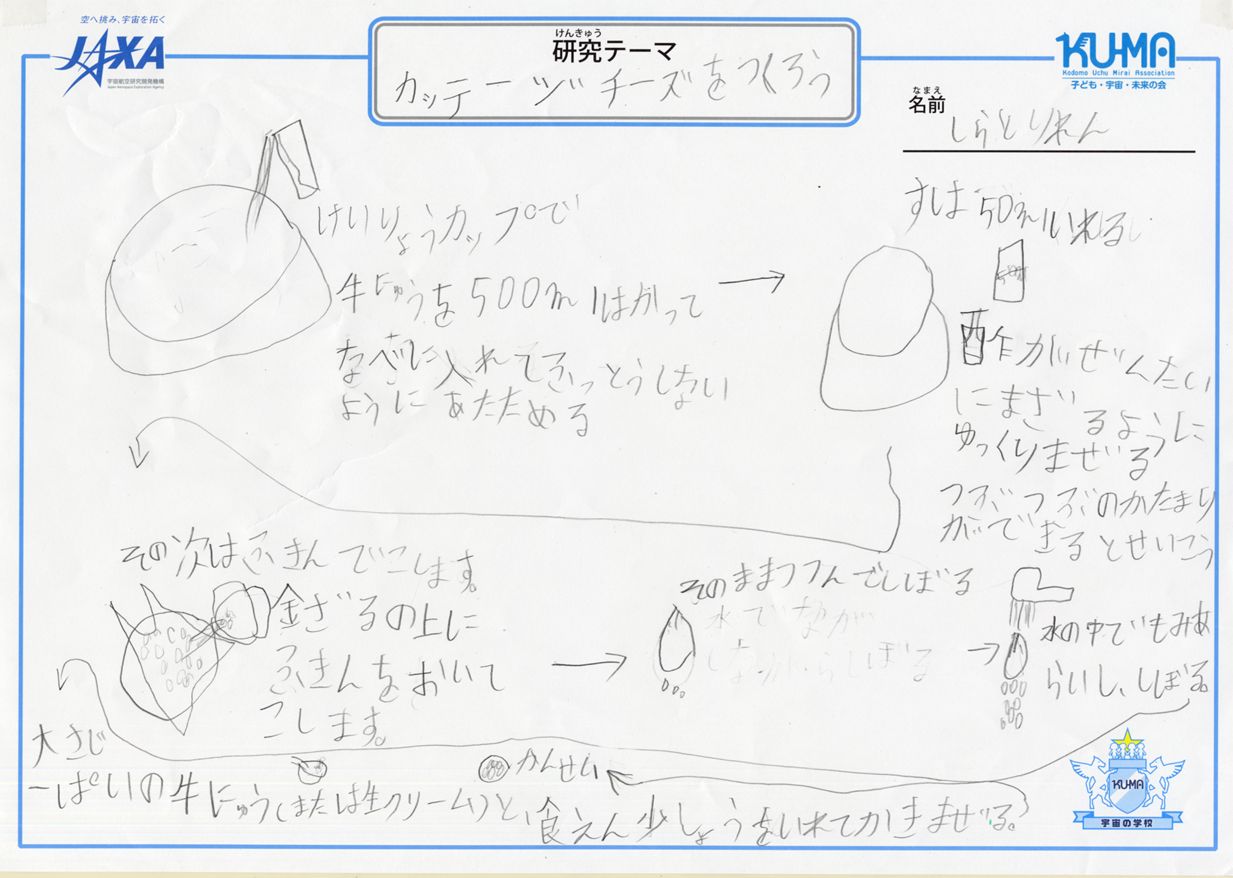 空へ挑み、宇宙を拓く
JAXA
宇宙航空研究開発機構
Japan Aerospace Exploration Agency
けんきゅう
研究テーマ
カッテージチーズをつくろう
KU-MA
Kodomo Uchu Mirai Association
子ども・宇宙・未来の会
なまえ
名前
しらとりれん
けいりょうカップで
牛にゅうを500mlはかって
なべに入れてふっとうしない
ようにあたためる
すは50mlいれる
酢がぜんたい
にまざるように
ゆっくりまぜる
つぶつぶのかたまり
ができるとせいこう
その次はふきんでこします。
金ざるの上に
ふきんをおいて
こします。
そのままつつんでしぼる
水でながしながらしぼる
水の中でもみあ
らいし、しぼる。
大さじ
一ぱいの牛にゅう(または生クリーム)と、食えん少しょうをいれてかきまぜる。
かんせい
KU-MA
宇宙の学校